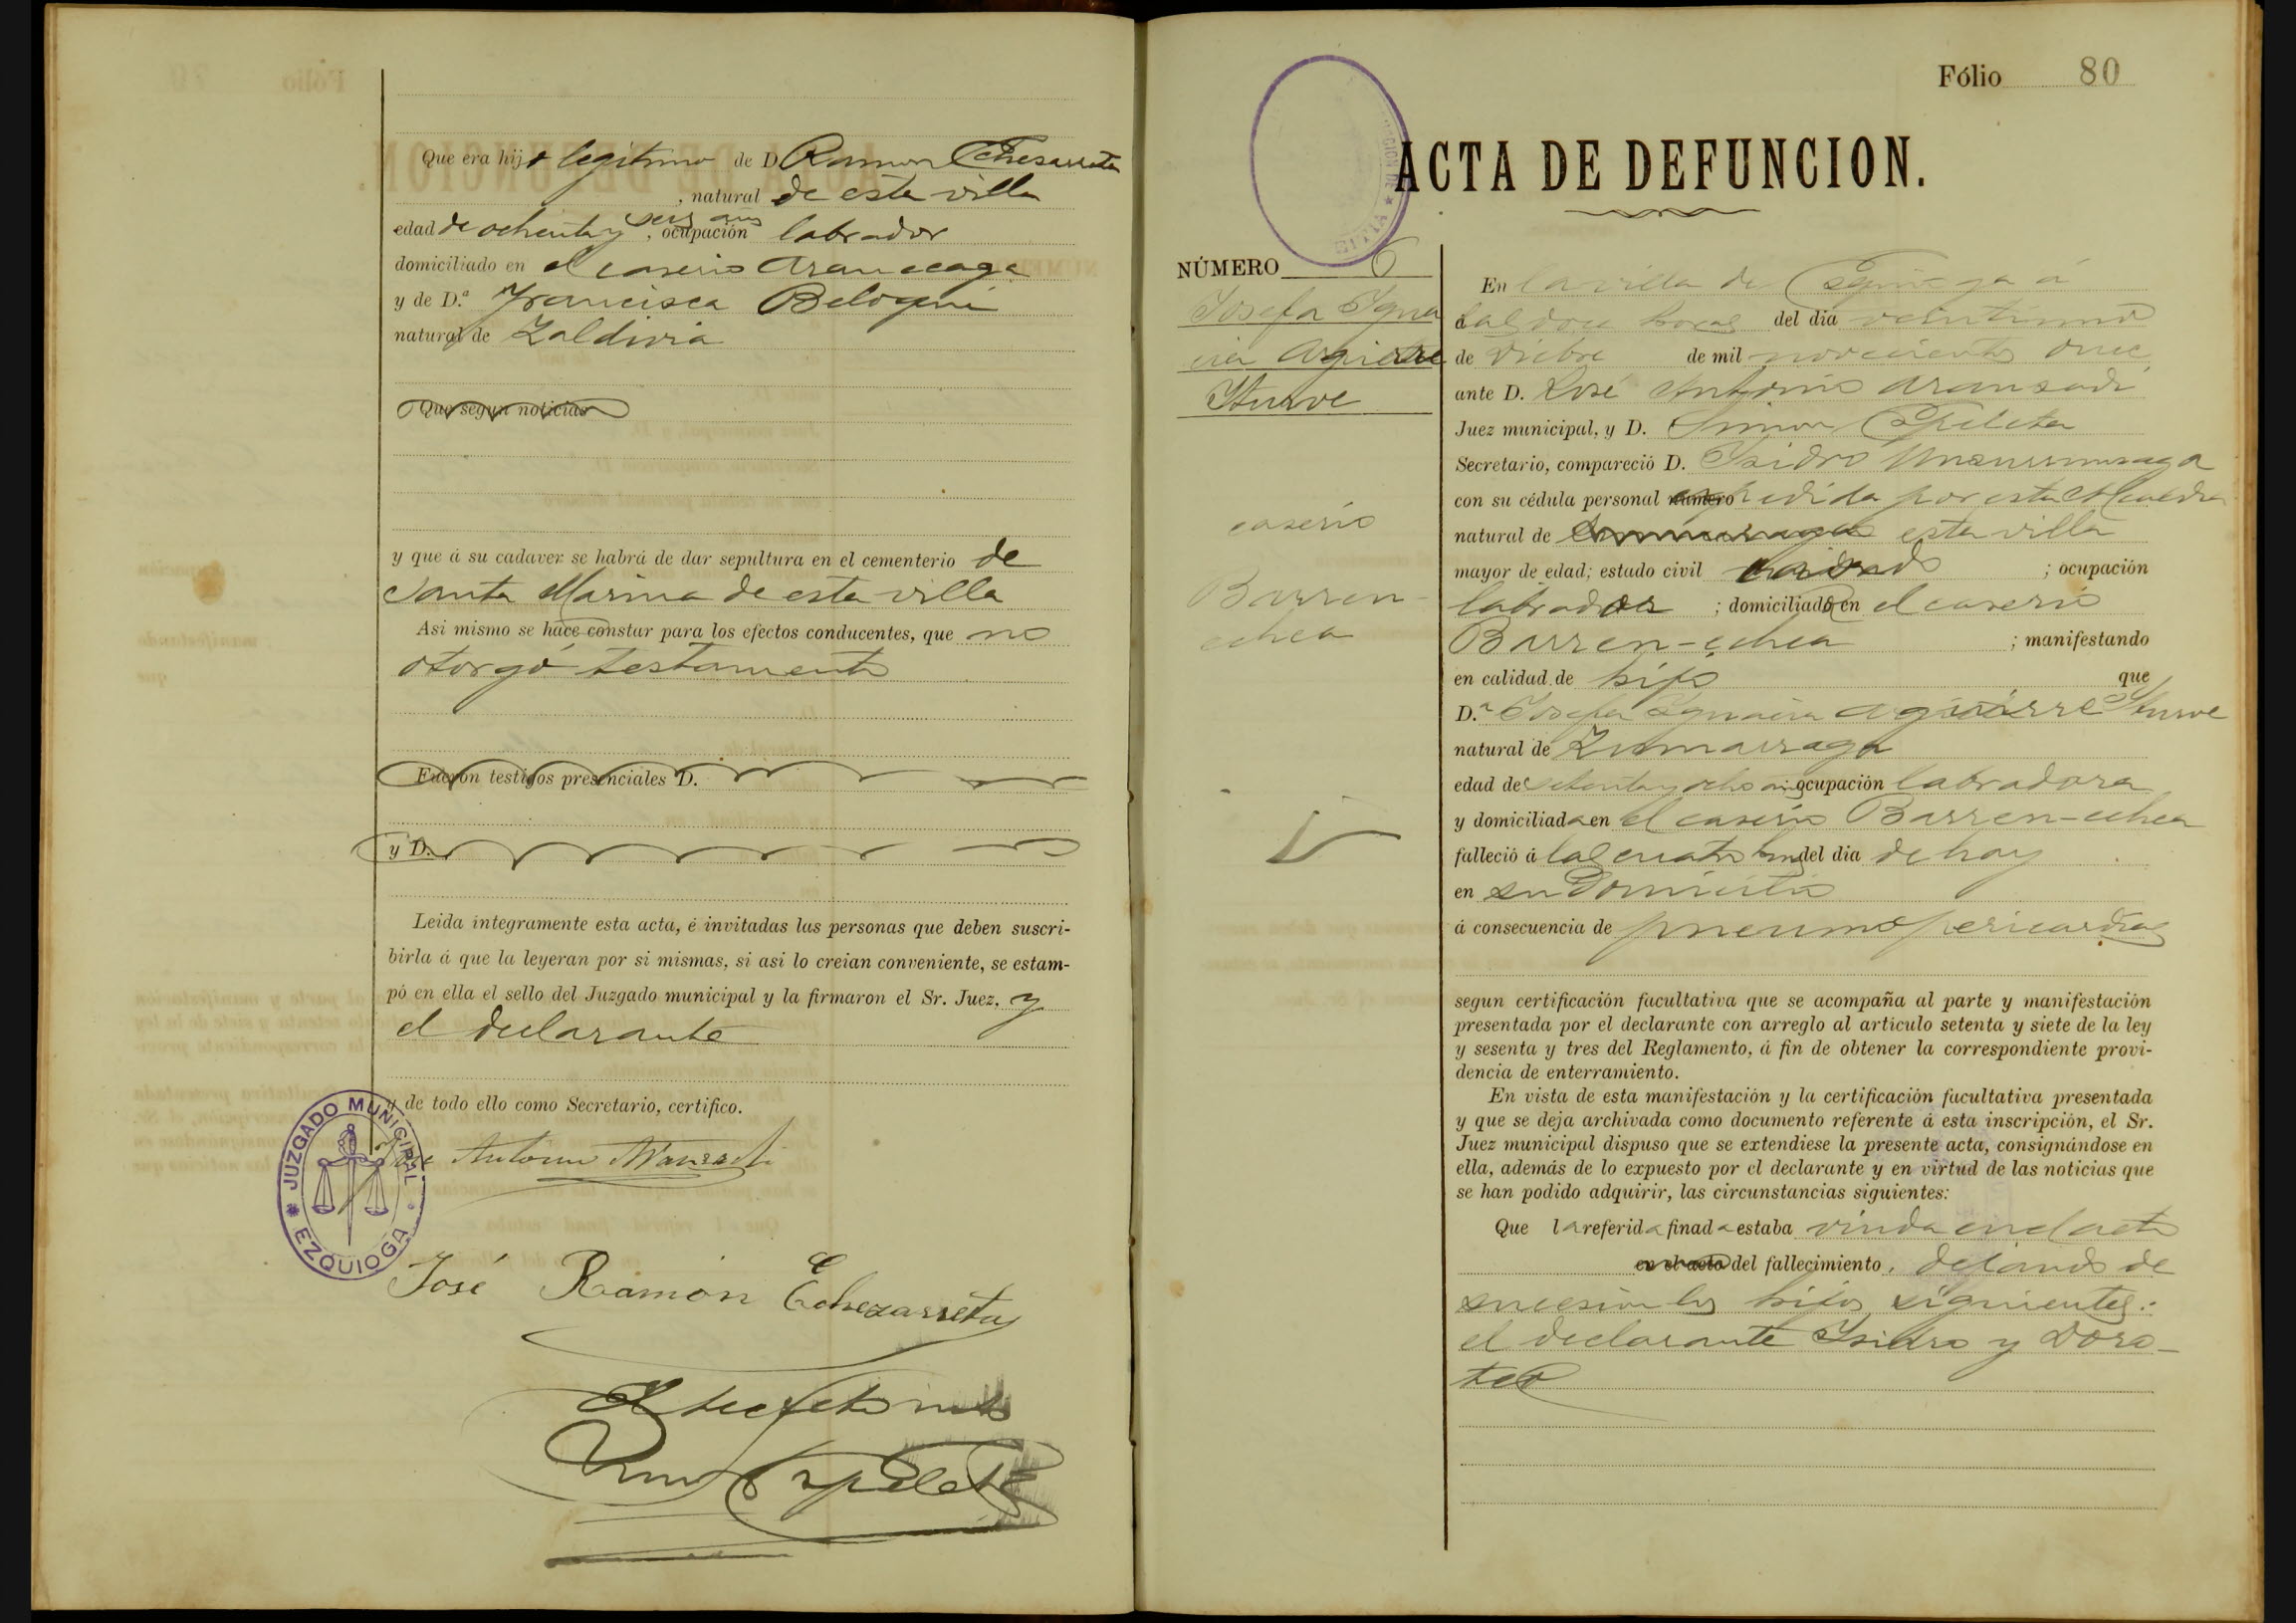 Que era hijo legítimo de D Ramon Echesarreta
, natural de esta villa
edad de ochenta y seis años, ocupación labrador
domiciliado en el caserio Aranceaga
y de D.ª Francisca Beloqui
natural de Zaldivia
Que segun noticias
y que á su cadaver se habrá de dar sepultura en el cementerio de
Santa Marina de esta villa
Asi mismo se hace constar para los efectos conducentes, que no
otorgó testamento
Fueron testigos presenciales D.
y D.
Leida integramente esta acta, é invitadas las personas que deben suscri-
birla á que la leyeran por si mismas, si asi lo creian conveniente, se estam-
pó en ella el sello del Juzgado municipal y la firmaron el Sr. Juez. y
el declarante
y de todo ello como Secretario, certifico.
JUZGADO MUNICIPAL
EZQUIOGA
José Antonio Aranzadi
José Ramón Echezarreta
Fólio 80
ACTA DE DEFUNCION.
NÚMERO 6
Josefa Igna
cia Aguirre
Iturve
caserio
Barren-
echea
En la villa de Ezquioga á
las doce horas del dia veintiuno
de Dicbre de mil novecientos once
ante D. José Antonio Aranzadi
Juez municipal, y D. Simon Espeleta
Secretario, compareció D. Isidro Unanurrunzaga
con su cédula personal número expedida por esta Alcaldia
natural de esta villa
mayor de edad; estado civil casado ; ocupación
labrador ; domiciliado en el caserio
Barren-echea ; manifestando
en calidad de hijo que
D.ª Josefa Ignacia Aguirre Iturve
natural de Zumarraga
edad de setenta y ocho años ocupación labradora
y domiciliada en el caserio Barren-echea
falleció á las cuatro horas del dia de hoy
en su domicilio
á consecuencia de pneumopericardias
segun certificación facultativa que se acompaña al parte y manifestación
presentada por el declarante con arreglo al articulo setenta y siete de la ley
y sesenta y tres del Reglamento, á fin de obtener la correspondiente provi-
dencia de enterramiento.
En vista de esta manifestación y la certificación facultativa presentada
y que se deja archivada como documento referente á esta inscripción, el Sr.
Juez municipal dispuso que se extendiese la presente acta, consignándose en
ella, además de lo expuesto por el declarante y en virtud de las noticias que
se han podido adquirir, las circunstancias siguientes:
Que la referida finada estaba viuda en el acto
en el acto del fallecimiento, dejando de
sucesion los hijos siguientes:
el declarante Isidro y Doro-
teo